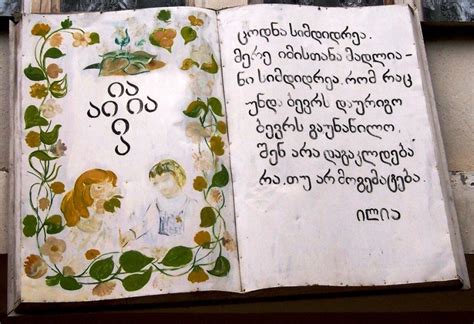 ია
აი ია
ი
ა
ცოდნა სიმდიდრეა.
მერე იმისთანა მადლია-
ნი სიმდიდრეა, რომ რაც
უნდ. ბევრს დაურიგო
ბევრს გაუნაწილო.
შენ არა დაგაკლდება
რა, თუ არ მოგემატება.
ილია